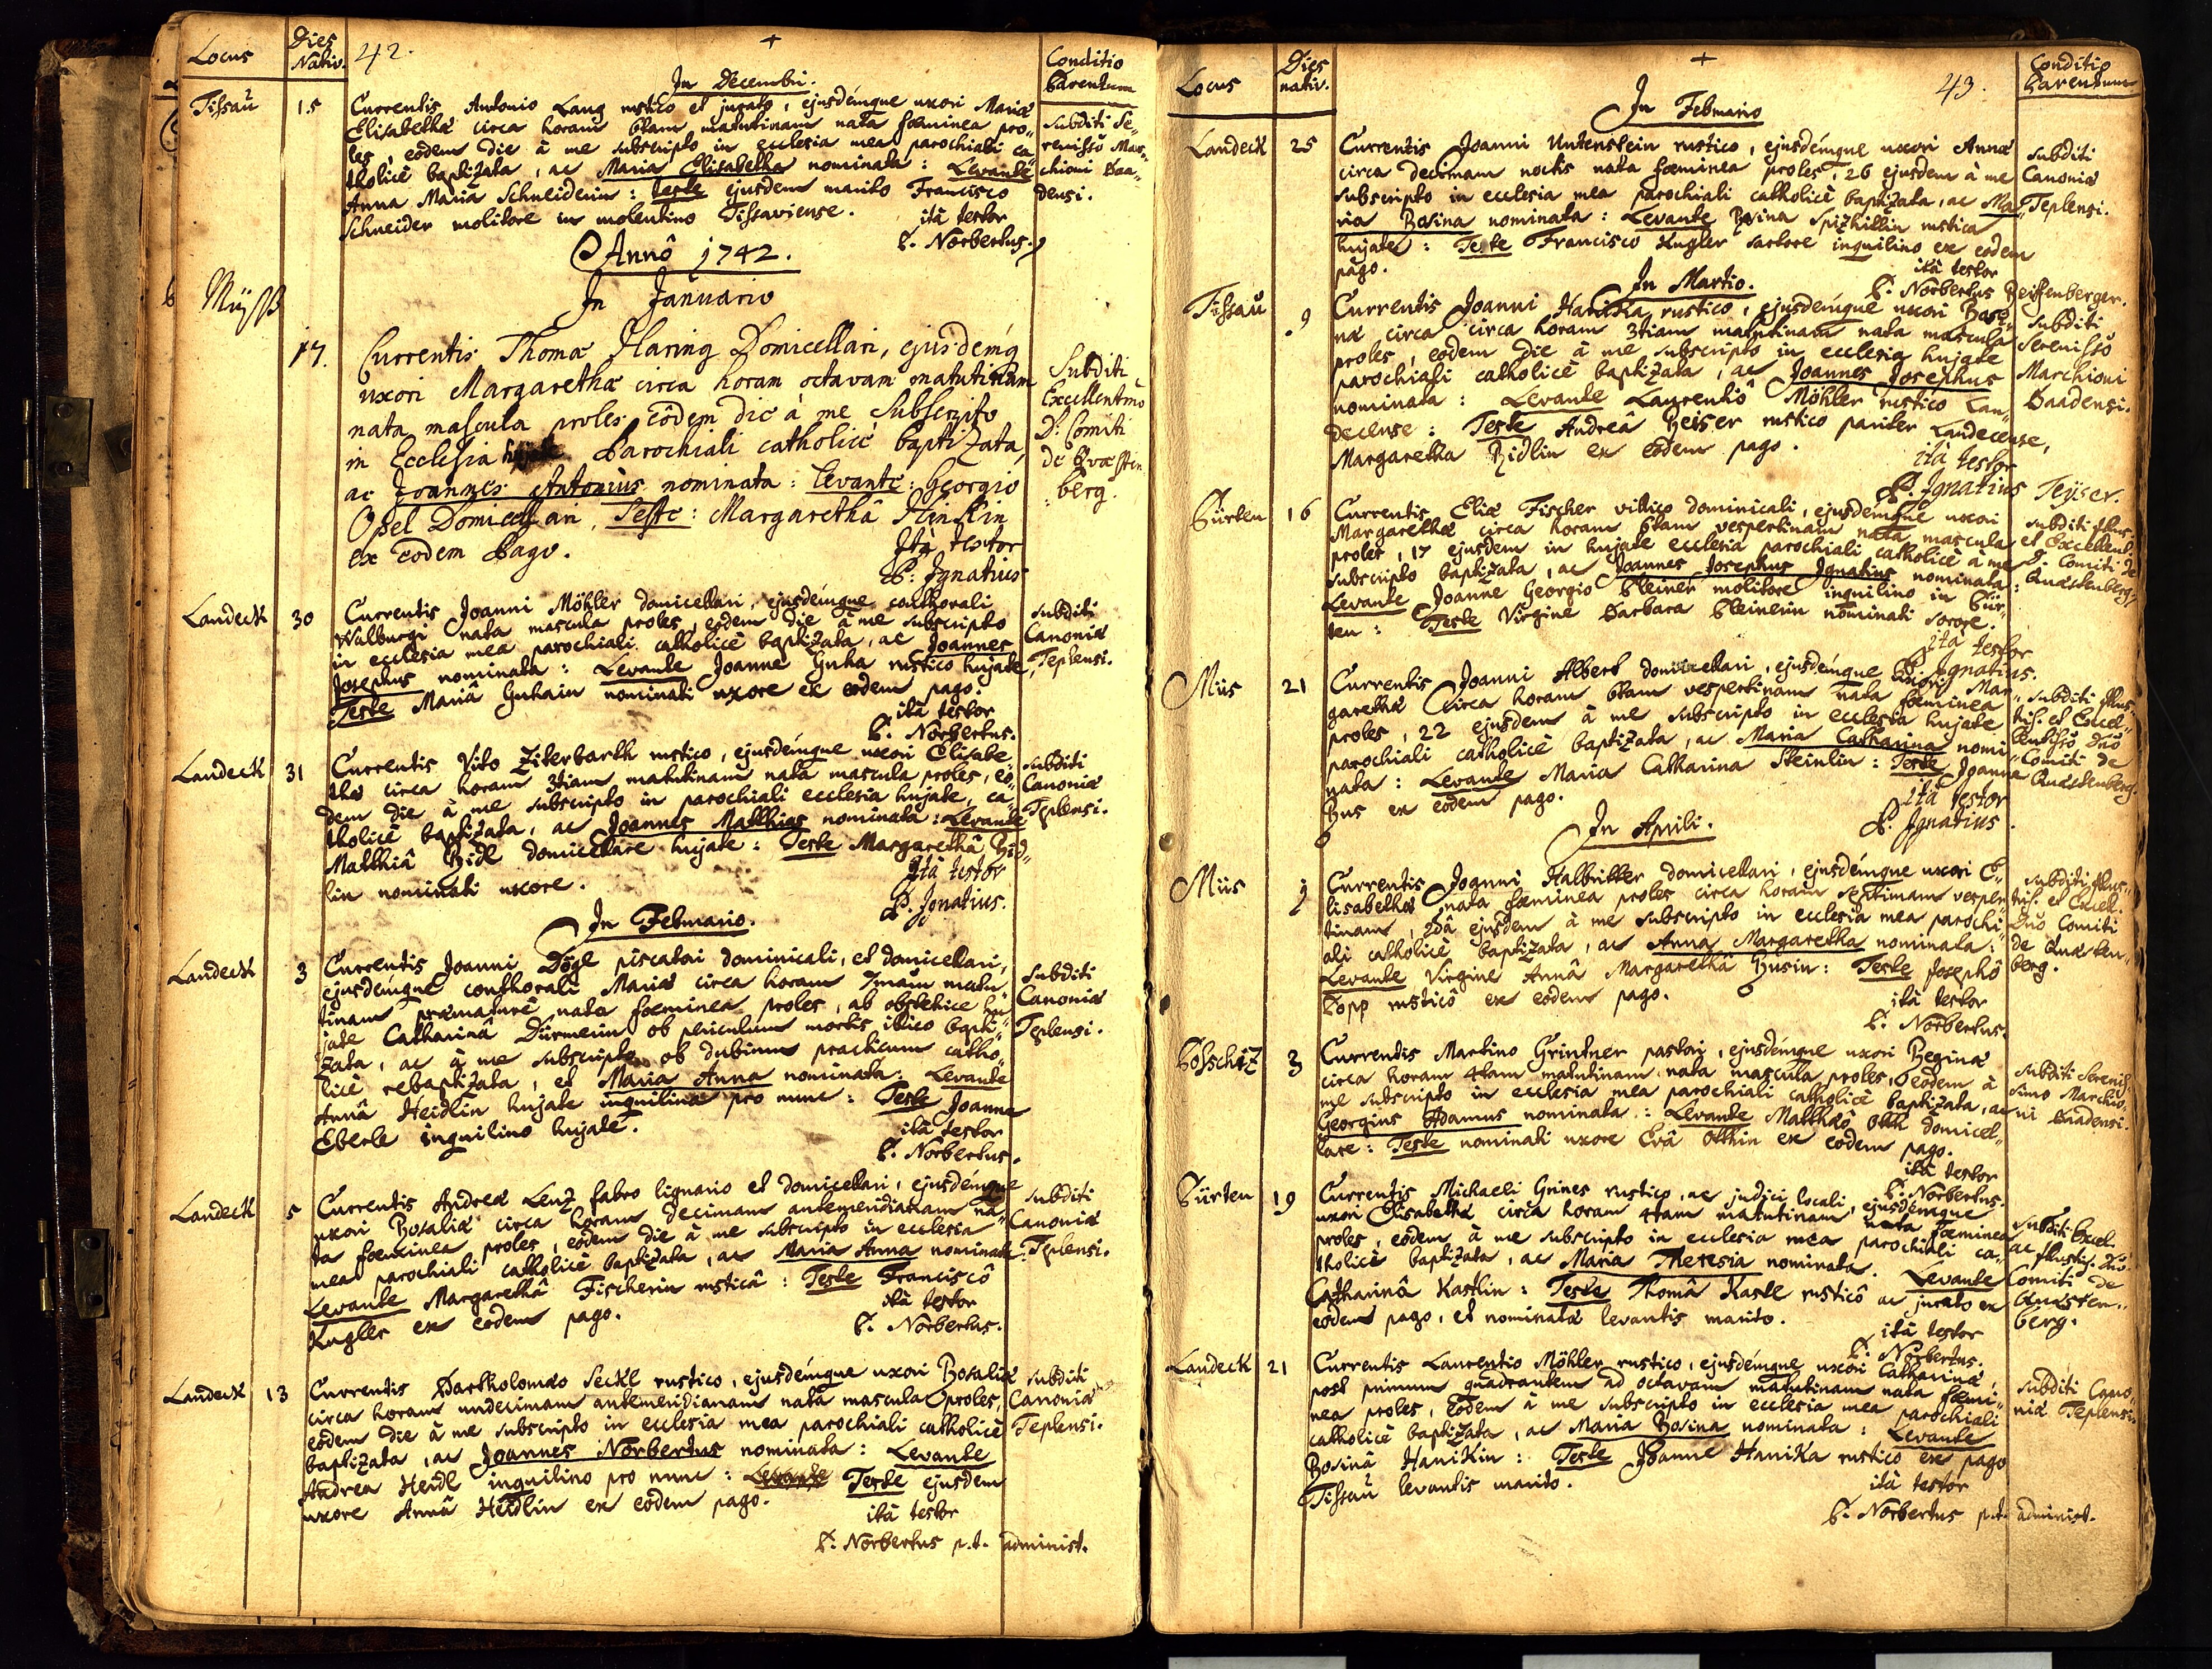 Locus
Dies
Nativ.
42.
Conditio
Parentum
In Decembri.
Tissau
15
Currentis Antonio Lang rustico et jurato, ejusdémque uxori Mariæ
Elisabethæ circa horam 6tam matutinam nata fœminea pro„
les, eôdem die à me subscripto in ecclesia mea parochiali ca„
tholicè baptizata, ac Maria Elisabetha nominata: Levante
Anna Maria Schneiderin: teste ejusdem marito Francisco
Schneider molitore in molentino Tissaviense.
ità testor
P. Norbertus.
subditi Se„
renissõ Mar„
chioni Baa„
densi.
Annô 1742.
In Januario
Müyss
17.
Currentis Thomæ Haring Domicellari, ejusdémq
uxori Margarethæ circa horam octavam matutinam
nata mascula proles eôdem die à me Subscripto
in Ecclesia hujate Parochiali catholicè baptizata,
ac Joannes Antonius nominata: Levante: Georgio
Opel Domicellari, Teste: Margarethâ
ex eodem Pago.
Ità testor
P. Ignatius
Subditi
Excellentmo
D. Comiti
de Quæsten
berg.
Landeck
30
Currentis Joanni Möhler domicellari, ejusdémque conthorali
Walburgi nata mascula proles, eodem die à me subscripto
in ecclesia mea parochiali catholicè baptizata, ac Joannes
Josephus nominata: Levante Joanne Guha rustico hujate,
Teste Mariâ Guhain nominati uxore ex eodem pago:
ità testor
P. Norbertus.
subditi
Canoniæ
Teplensi.
Landeck
31
Currentis Vito Ziterbarth rustico, ejusdémque uxori Elisabe„
thæ circa horam 3tiam matutinam nata mascula proles, eo„
dem die à me subscripto in parochiali ecclesia hujate, ca„
tholicè baptizata, ac Joannes Matthias nominata: Levante
Matthiâ Ridl domicellare hujate: Teste Margarethâ Rid„
lin nominati uxore.
Ità testor
P. Ignatius.
subditi
Canoniæ
Teplensi.
In Februario.
Landeck
3
Currentis Joanni Dögl piscatori dominicali, et domicellari,
ejusdémque conthorali Mariæ circa horam 7mam matu„
tinam præmaturè nata fœminea proles, ab obstetrice hu„
jate Catharinâ Dürmerin ob periculum mortis illico bapti„
zata, ac à me subscripto ob dubium practicum catho„
licè rebaptizata, et Maria Anna nominata: Levante
Annâ Heidlin hujate inquilina pro nunc: Teste Joanne
Eberle inquilino hujate.
ità testor
P. Norbertus.
subditi
Canoniæ
Teplensi.
Landeck
5
Currentis Andreæ Lenz fabro lignario et domicellari, ejusdémque
uxori Rosaliæ circa horam decimam antemeridianam na„
ta fœminea proles, eodem die à me subscripto in ecclesia
mea parochiali catholicè baptizata, ac Maria Anna nominata:
Levante Margarethâ Fischerin rusticâ: Teste Franciscô
Kugler ex eodem pago.
ità testor
P. Norbertus.
subditi
Canoniæ
Teplensi.
Landeck
13
Currentis Bartholomæo Seckl rustico, ejusdémque uxori Rosaliæ
circa horam undecimam antemeridianam nata mascula proles,
eôdem die à me subscripto in ecclesia mea parochiali catholicè
baptizata, ac Joannes Norbertus nominata: Levante
Andrea Heidl inquilino pro nunc: Levante Teste ejusdem
uxore Annâ Heidlin ex eodem pago.
ità testor
P. Norbertus p.t. administ.
subditi
Canoniæ
Teplensi.
Locus
Dies
nativ.
43.
Conditio
Parentum
In Februario
Landeck
25
Currentis Joanni Untenstein rustico, ejusdémque uxori Annæ
circa decimam noctis nata fœminea proles, 26 ejusdem à me
subscripto in ecclesia mea parochiali catholicè baptizata, ac Ma„
ria Rosina nominata: Levante Rosina Spizhillin rustica
hujate: Teste Francisco Kugler sartore inquilino ex eodem
pago.
ità testor
P. Norbertus Reiffenberger.
subditi
Canoniæ
Teplensi.
In Martio.
Tissau
9
Currentis Joanni Hanika rustico, ejusdémque uxori Rosi„
næ circa circa horam 3tiam matutinam nata mascula
proles, eodem die à me subscripto in ecclesia hujate
parochiali catholicè baptizata, ac Joannes Josephus
nominata: Levante Laurentiô Möhler rustico Lan„
decense: Teste Andreâ Reiser rustico pariter Landecense,
Margaretha Ridlin ex eôdem pago.
ità testor
P. Ignatius Teyser.
subditi
Serenissõ
Marchioni
Baadensi.
Pürten
16
Currentis Eliæ Fischer villico dominicali, ejusdémque uxori
Margarethæ circa horam 6tam vespertinam nata mascula
proles, 17 ejusdem in hujate ecclesia parochiali catholicè à me
subscripto baptizata, ac Joannes Josephus Ignatius nominata:
Levante Joanne Georgio Pleiner molitore inquilino in Pür„
ten: Teste Virgine Barbara Pleinerin nominati sorore.
ità testor
P. Ignatius.
subditi Illus„
et Excellent.
D. Comiti de
Quæstenberg.
Miis
21
Currentis Joanni Albert domicellari, ejusdémque uxori Mar„
garethæ circa horam 6tam vespertinam nata fœminea
proles, 22 ejusdem à me subscripto in ecclesia hujate
parochiali catholicè baptizata, ac Maria Catharina nomi„
nata: Levante Maria Catharina Steinlin: Teste Joanne
Bus ex eodem pago.
ità testor
P. Ignatius.
subditi Illus„
tris. et Excel„
lentissõ Dnõ
Comiti de
Quæstenberg.
In Aprili.
Miis
1
Currentis Joanni Halbritter domicellari, ejusdémque uxori E„
lisabethæ nata fœminea proles circa horam septimam vesper„
tinam, 2dâ ejusdem à me subscripto in ecclesia mea parochi„
ali catholicè baptizata, ac Anna Margaretha nominata:
Levante Virgine Annâ Margarethâ Busin: Teste Josephô
Popp rusticô ex eodem pago.
ità testor
P. Norbertus.
subditi Illus„
tris. et Excel.
Dnõ Comiti
de Quæsten„
berg.
Poschiz
3
Currentis Martino Grintner pastori, ejusdémque uxori Reginæ
circa horam 4tam matutinam nata mascula proles, eodem à
me subscripto in ecclesia mea parochiali catholicè baptizata, ac
Georgius Adamus nominata: Levante Matthæô Ott domicel„
lare: Teste nominati uxore Evâ Otthin ex eodem pago.
ità testor
P. Norbertus.
subditi Serenis„
simo Marchio„
ni Baadensi.
Pürten
19
Currentis Michaeli Grines rustico, ac judici locali, ejusdémque
uxori Elisabethæ circa horam 4tam matutinam nata fœminea
proles, eodem à me subscripto in ecclesia mea parochiali ca„
tholicè baptizata, ac Maria Theresia nominata. Levante
Catharinâ Kastlin: Teste Thomâ Kastl rusticô ac jurato ex
eodem pago, et nominatæ levantis marito.
ità testor
P. Norbertus.
subditi Excel.
ac Illustris. Dnõ
Comiti de
Quæsten„
berg.
Landeck
21
Currentis Laurentio Möhler rustico, ejusdémque uxori Catharinæ,
post primum quadrantem ad octavam matutinam nata fœmi„
nea proles, eôdem à me subscripto in ecclesia mea parochiali
catholicè baptizata, ac Maria Rosina nominata: Levante
Rosinâ Hanikin: Teste Joanne Hanika rustico ex pago
Tissau levantis marito.
ità testor
P. Norbertus p.t. administ.
subditi Cano„
niæ Teplensi.